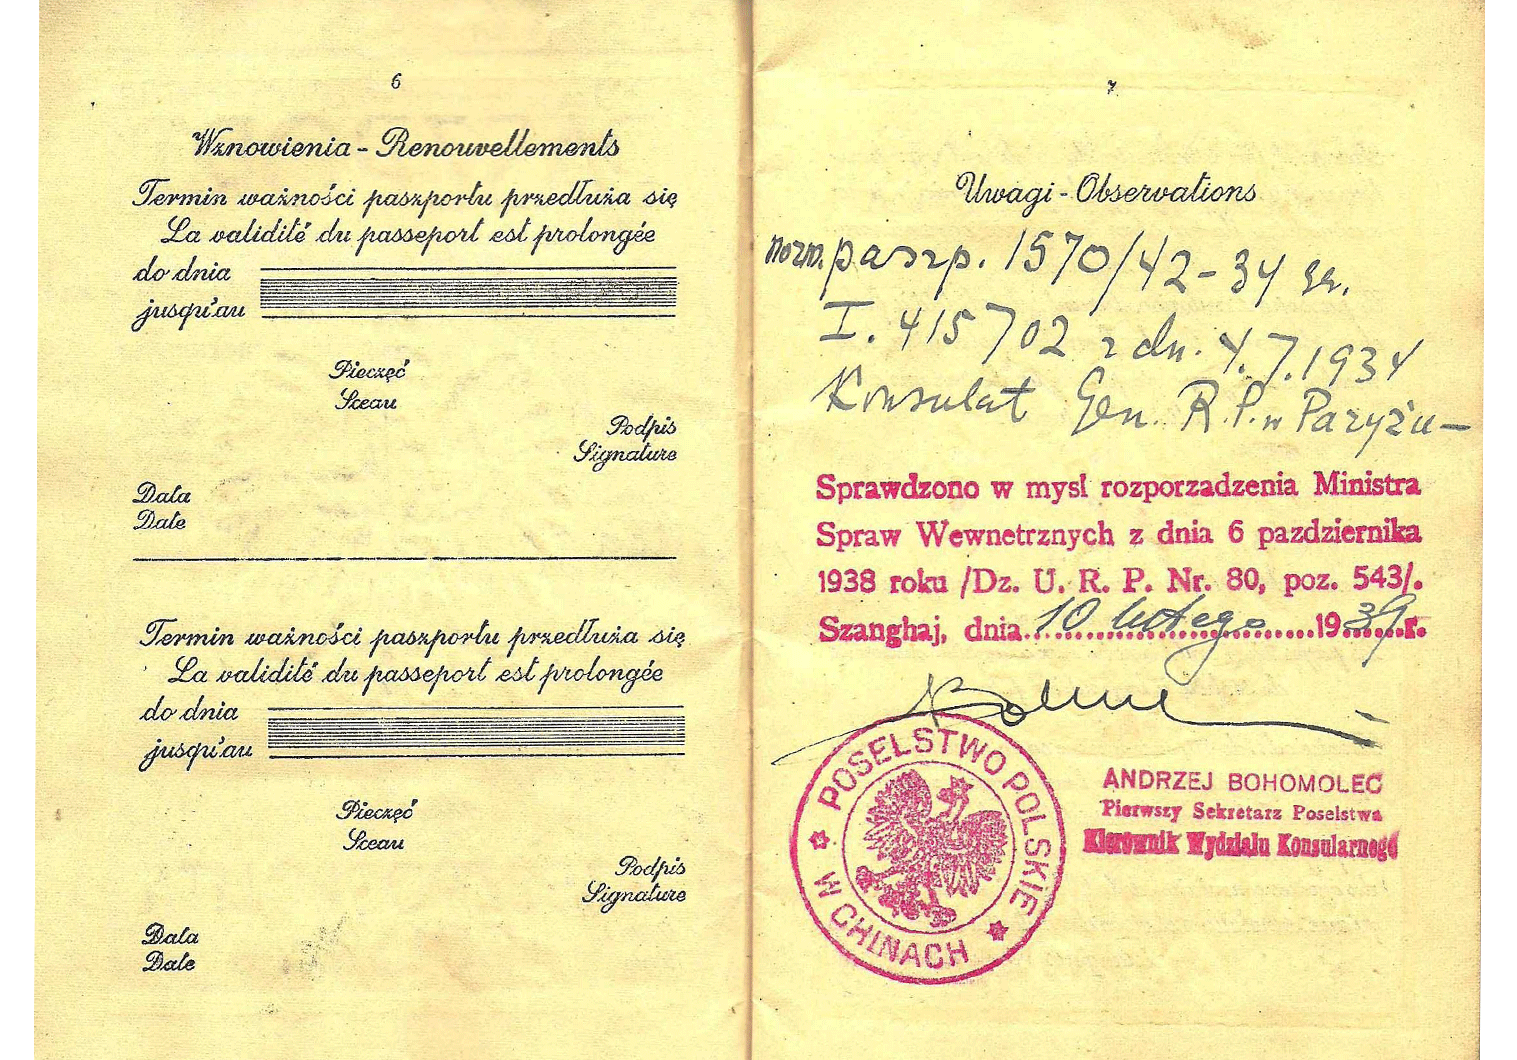 6
Wznowienia - Renouvellements
Termin ważności paszportu przedłuża się
La validité du passeport est prolongée
do dnia
jusqu'au
Pieczęć
Sceau
Podpis
Signature
Data
Date
Termin ważności paszportu przedłuża się
La validité du passeport est prolongée
do dnia
jusqu'au
Pieczęć
Sceau
Podpis
Signature
Data
Date
7
Uwagi - Observations
paszp. 1570/42-34
I. 415702 z dn. 4.7.1934
Konsulat Gen. R.P. w Paryżu -
Sprawdzono w mysl rozporzadzenia Ministra
Spraw Wewnetrznych z dnia 6 pazdziernika
1938 roku /Dz. U. R. P. Nr. 80, poz. 543/.
Szanghaj, dnia 10 lutego 1939 r.
POSELSTWO POLSKIE
W CHINACH
ANDRZEJ BOHOMOLEC
Pierwszy Sekretarz Poselstwa
Kierownik Wydzialu Konsularnego